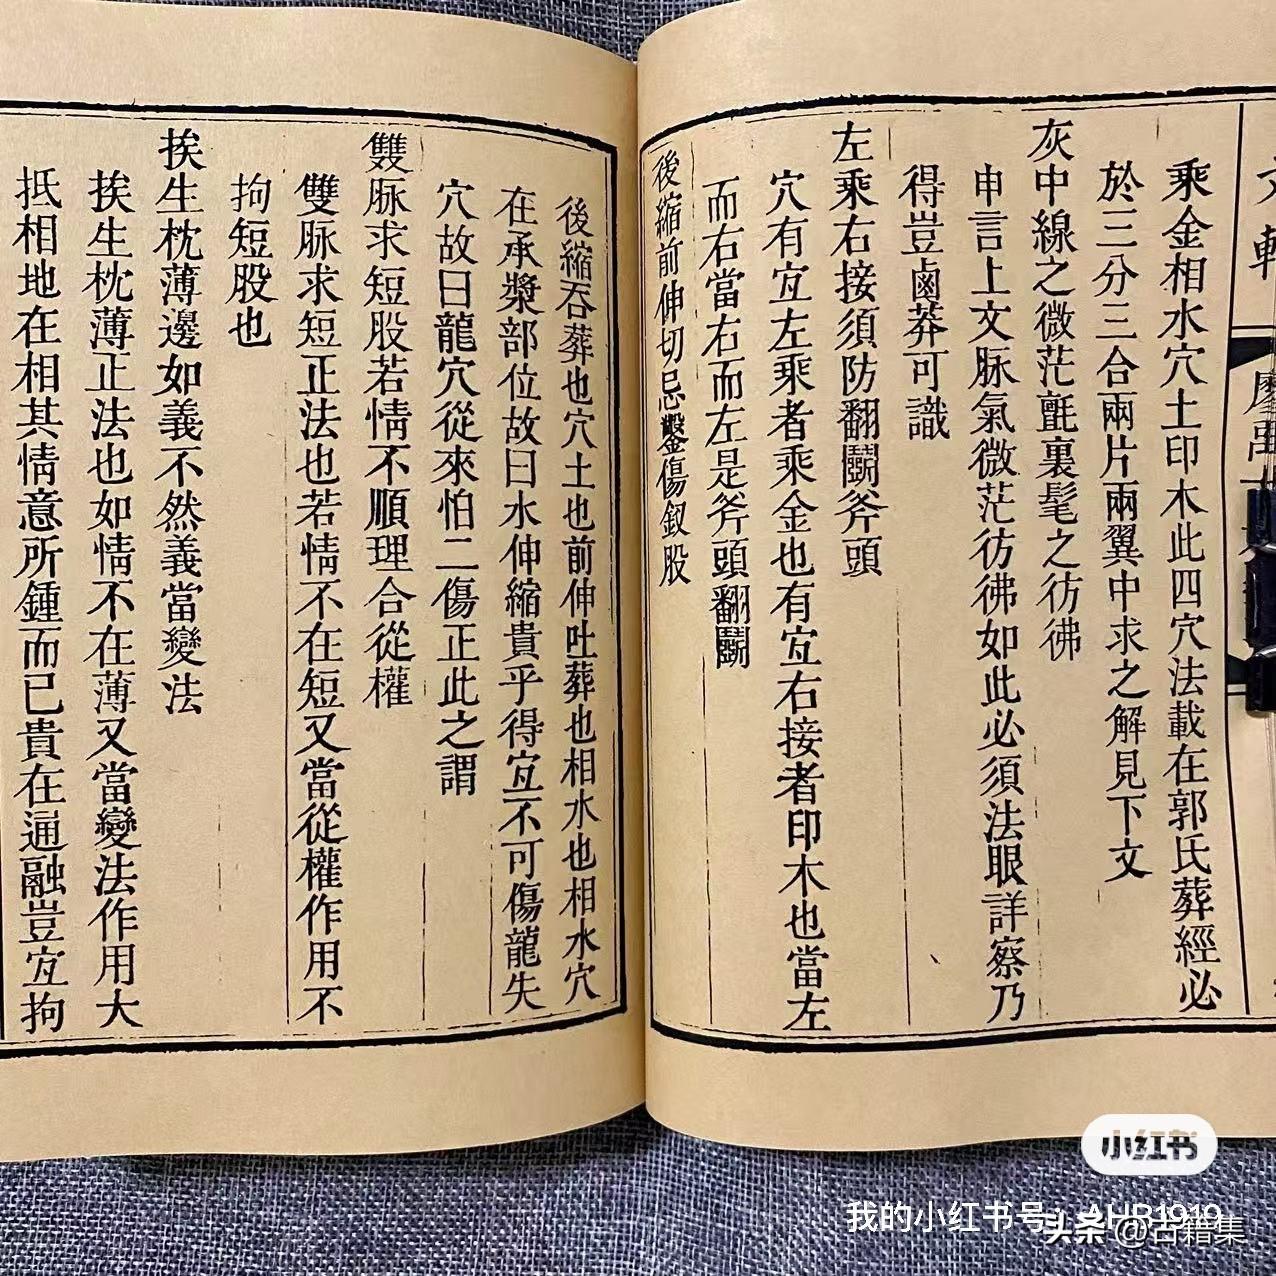 乘金相水穴土印木此四穴法載在郭氏葬經必
於三分三合兩片兩翼中求之解見下文
灰中線之微茫氈裏髦之彷彿
申言上文脉氣微茫彷彿如此必須法眼詳察乃
得豈鹵莽可識
左乘右接須防翻鬭斧頭
穴有宜左乘者乘金也有宜右接者印木也當左
而右當右而左是斧頭翻鬭
後縮前伸切忌鑿傷釵股
後縮吞葬也穴土也前伸吐葬也相水也相水穴
在承漿部位故曰水伸縮貴乎得宜不可傷龍失
穴故曰龍穴從來怕二傷正此之謂
雙脉求短股若情不順理合從權
雙脉求短正法也若情不在短又當從權作用不
拘短股也
挨生枕薄邊如義不然義當變法
挨生枕薄正法也如情不在薄又當變法作用大
抵相地在相其情意所鍾而已貴在通融豈宜拘
小红书
我的小红书号：AHB1919
头条 @古籍集